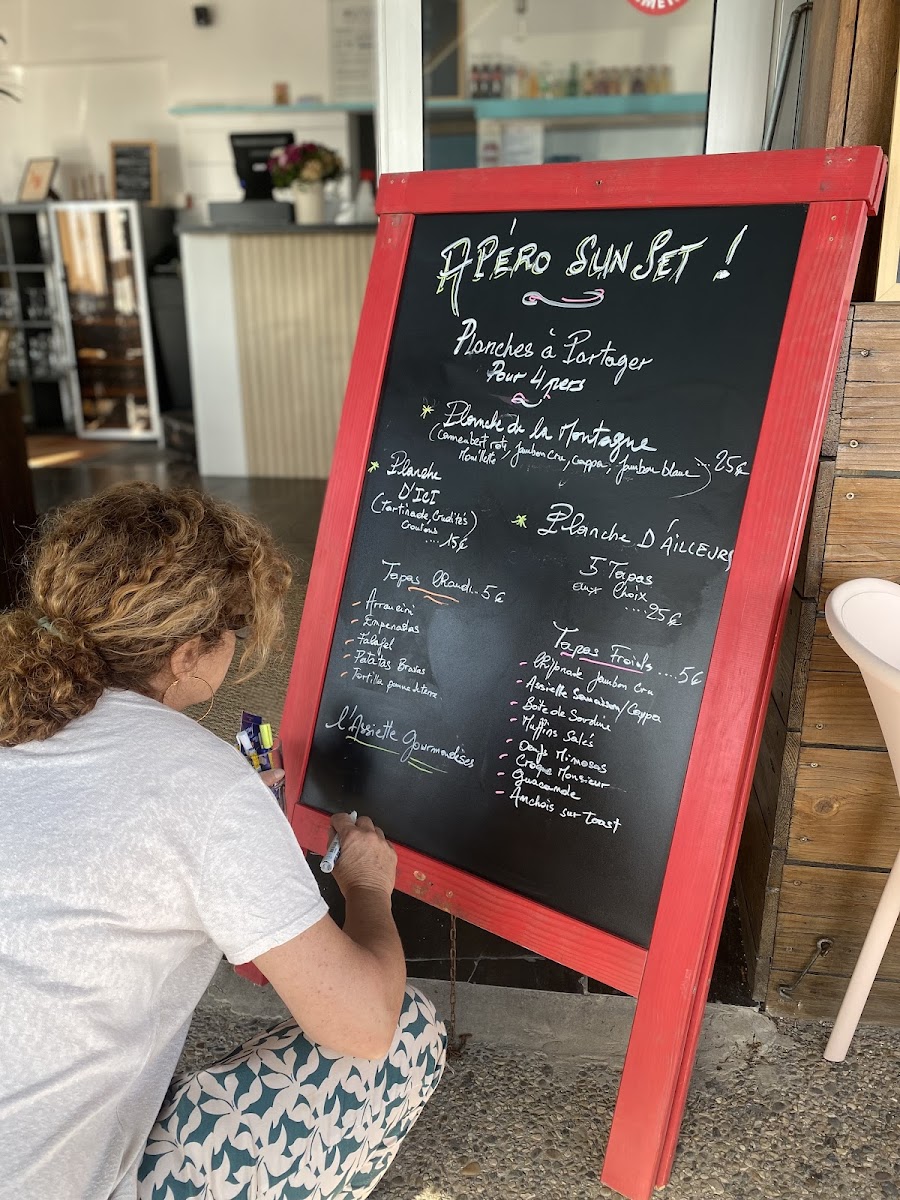 APÉRO SUNSET !
Planches à Partager
Pour 4 pers
Planche de la Montagne
(Camembert roti, Jambon Cru, Coppa, Jambon blanc) 25€
Mouillette
Planche
D'ICI
(Tartinade, Crudités
Croutons)
....15€
Planche D'AILLEURS
5 Tapas
aux Choix
....25€
Tapas Chaud...5€
- Arrancini
- Empanadas
- Falafel
- Patatas Bravas
- Tortilla pomme de terre
Tapas Froids ....5€
- Chifonade Jambon Cru
- Assiette Saucisson/Coppa
- Boîte de Sardine
- Muffins Salés
- Oeufs Mimosas
- Croque Monsieur
- Guacamole
- Anchois sur Toast
l'Assiette Gourmandises